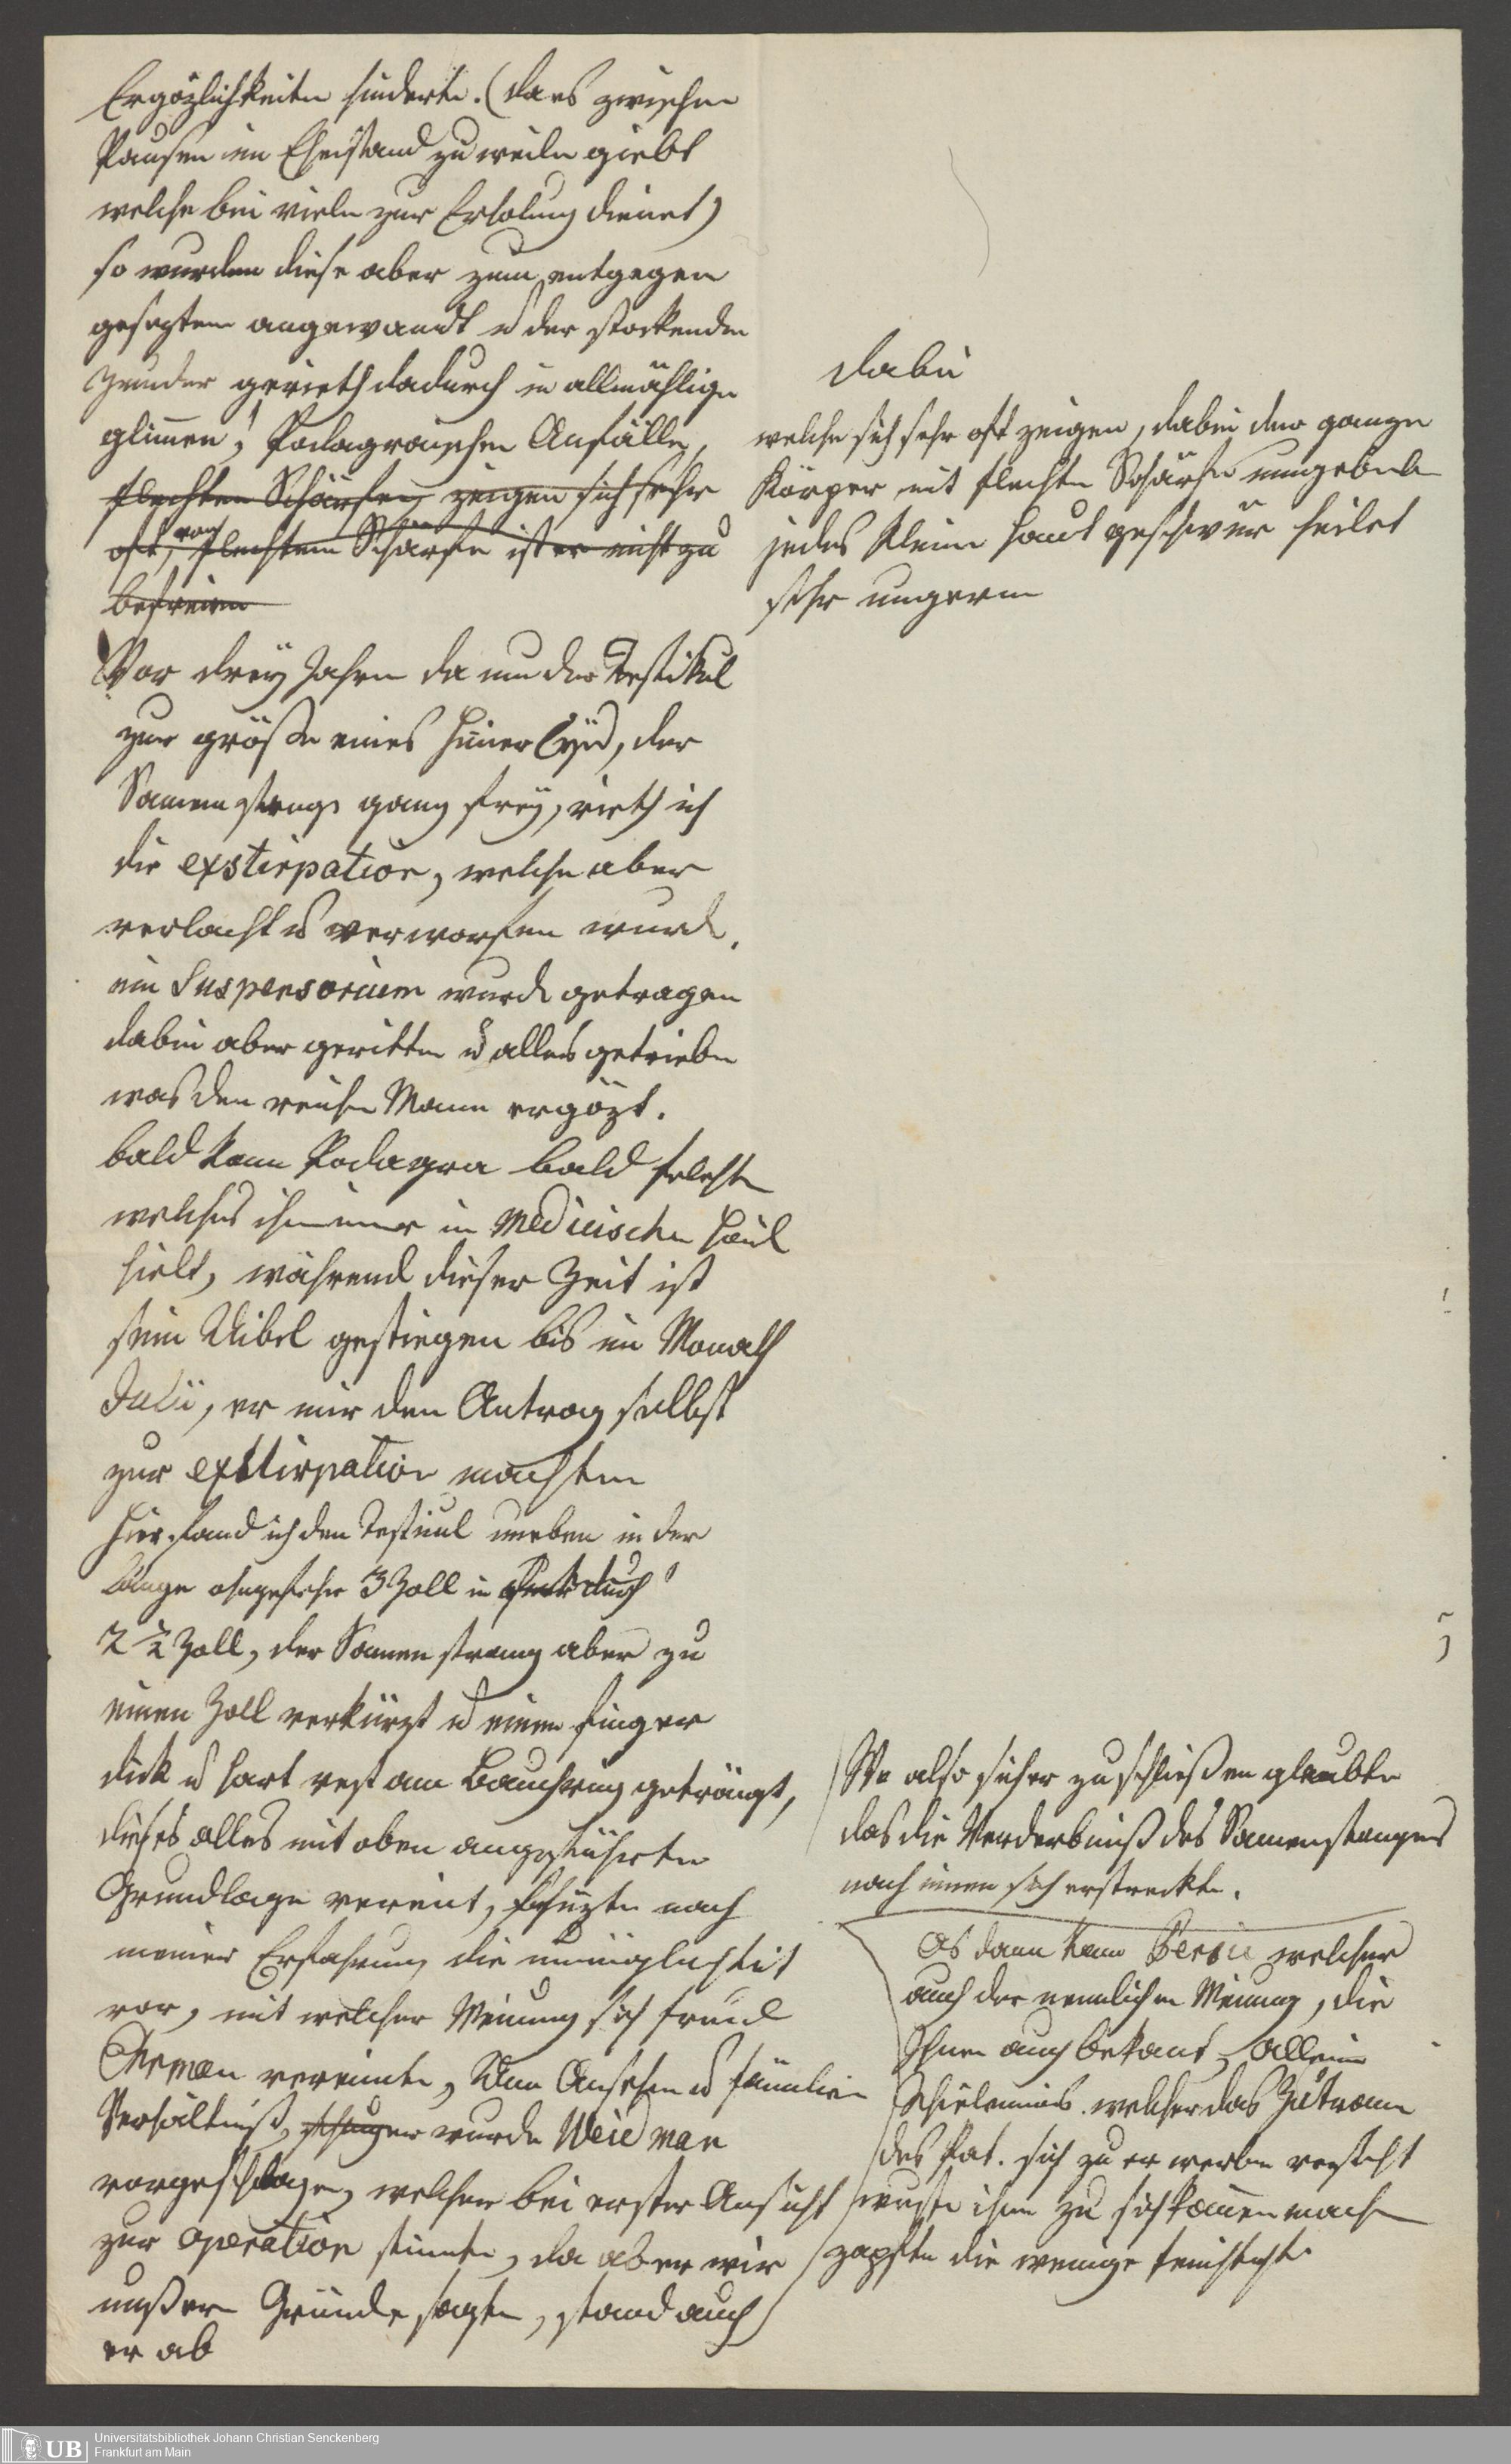 Ergözlichkeiten hinderte. (da es zwischen
Pausen im Ehestand zu weilen giebt
welche bei vielen zur Erholung dienet)
so wurden diese aber zum entgegen
gesezten angewandt u der stockenden
Zunder gerieth dadurch in allmähliges
glimmen, Podagraischen Anfälle,
flechten Schärfen zeigen sich sehr
oft, von flechtem Schärfe ist er nicht zu
befreien
dabei
welche sich sehr oft zeigen, dabei der ganze
Körper mit flechten Schärfe umgeben
jedes kleine Haut geschwür heilet
sehr ungern
Vor drey Jahren da nun der Testikul
zur größe eines Hüner Eys, der
Samen strang ganz frey, rieth ich
die exstirpation, welche aber
verlacht u verworfen wurde.
ein Suspensorium wurde getragen
dabei aber geritten u alles getrieben
was den reichen Mann ergözt.
bald kam Podagra bald flechte
welches ihn immer in Medicischen
hielt, während dieser Zeit ist
sein Uibel gestiegen bis im Monath
Julii, er mir den Antrag selbst
zur exstirpation machten
Hier fand ich den Testicul uneben in der
Länge ohngefehr 3 Zoll in durch
2 ½ Zoll, der Samen strang aber zu
einen Zoll verkürzt u einen finger
dick u hart vest am Bauchring geträngt,
dieses alles mit oben angeführten
Grundlage vereint, schüzte nach
meiner Erfahrung die unmöglichkeit
vor, mit welcher Meinung sich freund
Ehrman vereinte, Dem Ansehen u familien
Verhältniß, wurde Weidman
vorgeschlagen, welcher bei erster Ansicht
zur operation stimte, da aber wir
unßere Gründe sagten, stand auch
er ab
Wo also sicher zu schließen glaubte
das die Verderbniß des Samenstranges
nach innen sich erstreckte.
Als dann kam welcher
auch der nemlichen Meinung, die
Ihnen auch bekant, allein
welcher das Zutrauen
des Pat. sich zu erwerben versteht
wuste ihm zu sich kommen machen
zapfte die wenige feuchtichte
Universitätsbibliothek Johann Christian Senckenberg
Frankfurt am Main
UB